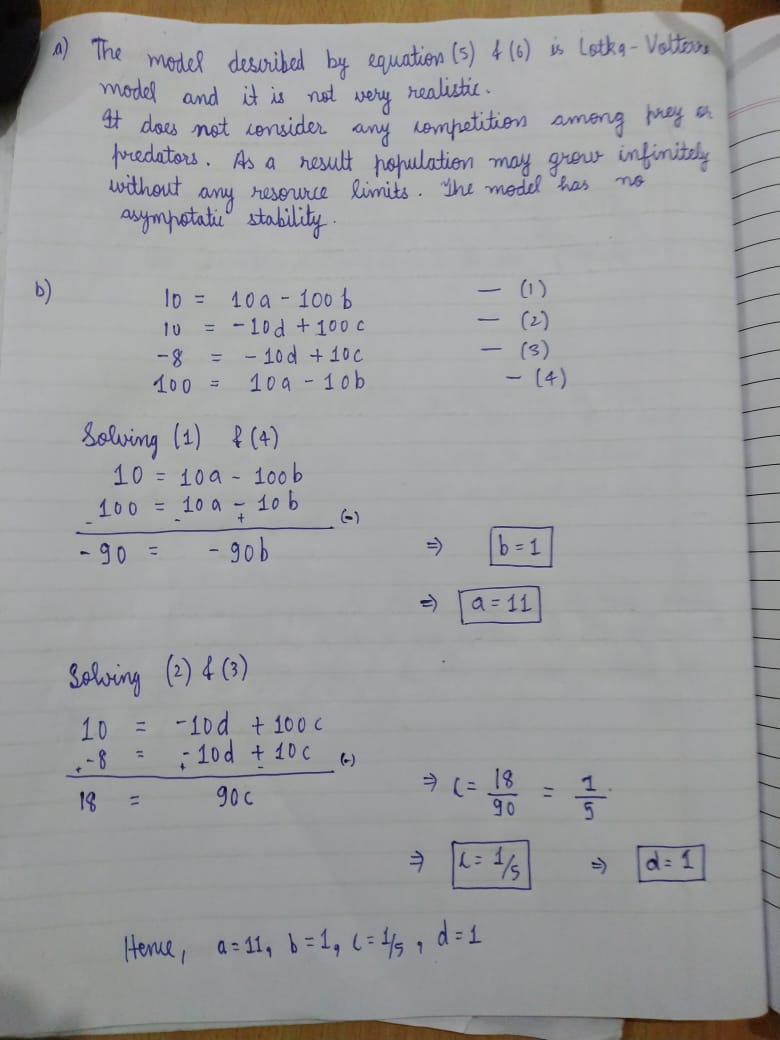 a) The model described by equation (5) & (6) is Lotka-Volterra
model and it is not very realistic.
It does not consider any competition among prey or
predators. As a result population may grow infinitely
without any resource limits. The model has no
asympotatic stability.
b) 10 = 10a - 100b — (1)
10 = -10d + 100c — (2)
-8 = -10d + 10c — (3)
100 = 10a - 10b — (4)
Solving (1) & (4)
10 = 10a - 100b
100 = 10a - 10b
- - + (-)
-90 = -90b ⇒ b = 1
⇒ a = 11
Solving (2) & (3)
10 = -10d + 100c
-8 = -10d + 10c
+ + - (-)
18 = 90c ⇒ c = 18/90 = 1/5
⇒ c = 1/5 ⇒ d = 1
Hence, a = 11, b = 1, c = 1/5, d = 1